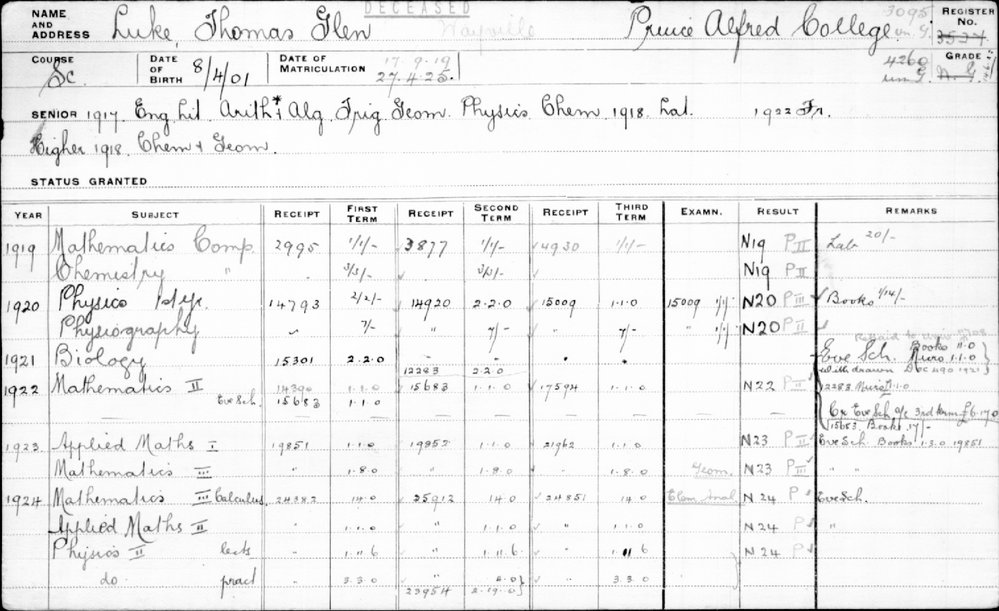 DECEASED
NAME AND ADDRESS Luke, Thomas Glen Wayville Prince Alfred College 3095 un. G. REGISTER No. 3537
COURSE Sc. DATE OF BIRTH 8/4/01 DATE OF MATRICULATION 17.9.19 27.4.25. 4260 un G. GRADE
SENIOR 1917 Eng. Lit. Arith + Alg. Trig. Geom. Physics. Chem. 1918. Lat. 1922 Fr.
Higher 1918. Chem + Geom.
STATUS GRANTED
YEAR SUBJECT RECEIPT FIRST TERM RECEIPT SECOND TERM RECEIPT THIRD TERM EXAMN. RESULT REMARKS
1919 Mathematics Comp. 2995 1/1/- 3877 1/1/- 4930 1/1/- N19 P II Lab 20/-
Chemistry " 3/3/- 3/3/- N19 P II
1920 Physics 1st yr. 14793 2/2/- 14920 2.2.0 15009 1.1.0 15009 1/1/- N20 P III Books 1/14/-
Physiography " 7/- " 7/- " 7/- " 1/1/- N20 P II
1921 Biology 15301 2.2.0 " " Eve Sch. Books 11.0
12283 2.2.0 withdrawn Dec 490 1921
1922 Mathematics II 14390 1.1.0 15683 1.1.0 17594 1.1.0 N22 P II 2283 1.1.0
Eve Sch. 15683 1.1.0 Eve Sch a/c 3rd term £6.17.0
15683 Books 17/-
1923 Applied Maths I 19851 1.1.0 19852 1.1.0 21962 1.1.0 N23 P II Eve Sch. Books 1.3.0 19851
Mathematics III " 1.8.0 " 1.8.0 " 1.8.0 Geom. N23 P III " "
1924 Mathematics III Calculus 24382 14.0 25912 14.0 24851 14.0 Elem. Anal N24 P Eve Sch.
Applied Maths II " 1.1.0 " 1.1.0 " 1.1.0 N24 P "
Physics II lects " 1.11.6 " 1.11.6 " 1.11.6 N24 P
do pract 3.3.0 " 4.0 3.3.0
23954 2.19.0